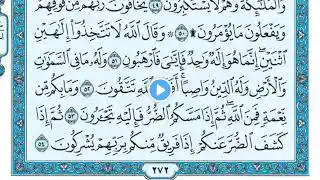 وَالْمَلَٰٓئِكَةُ وَهُمْ لَا يَسْتَكْبِرُونَ ٤٩ يَخَافُونَ رَبَّهُم مِّن فَوْقِهِمْ
وَيَفْعَلُونَ مَا يُؤْمَرُونَ ۩ ٥٠ ۞ وَقَالَ اللَّهُ لَا تَتَّخِذُوٓا۟ إِلَٰهَيْنِ
اثْنَيْنِ إِنَّمَا هُوَ إِلَٰهٌ وَٰحِدٌ فَإِيَّٰىَ فَارْهَبُونِ ٥١ وَلَهُۥ مَا فِى السَّمَٰوَٰتِ
وَالْأَرْضِ وَلَهُ الدِّينُ وَاصِبًا أَفَغَيْرَ اللَّهِ تَتَّقُونَ ٥٢ وَمَا بِكُم مِّن
نِّعْمَةٍ فَمِنَ اللَّهِ ثُمَّ إِذَا مَسَّكُمُ الضُّرُّ فَإِلَيْهِ تَجْـَٔرُونَ ٥٣ ثُمَّ إِذَا
كَشَفَ الضُّرَّ عَنكُمْ إِذَا فَرِيقٌ مِّنكُم بِرَبِّهِمْ يُشْرِكُونَ ٥٤
٢٧٢